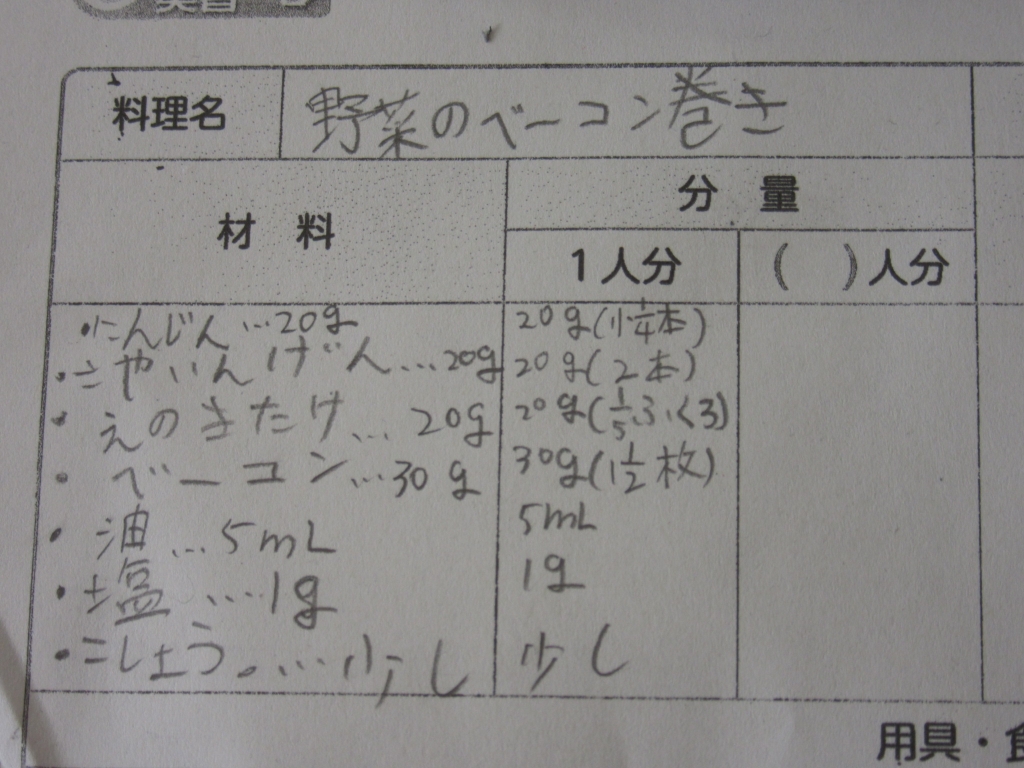 料理名 野菜のベーコン巻き
材料 分量
1人分 ( )人分
・にんじん…20g 20g(小1/4本)
・さやいんげん…20g 20g(2本)
・えのきたけ…20g 20g(1/5ふくろ)
・ベーコン…30g 30g(1 1/2枚)
・油…5mL 5mL
・塩…1g 1g
・こしょう。…少し 少し
用具・食